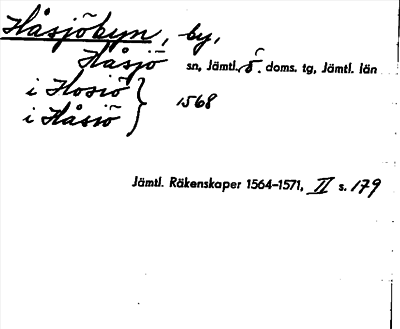 Håsjöbyn, by,
Håsjö sn, Jämtl. ö. doms. tg, Jämtl. län
i Hosiö }
i Håsiö } 1568
Jämtl. Räkenskaper 1564–1571, II s. 179